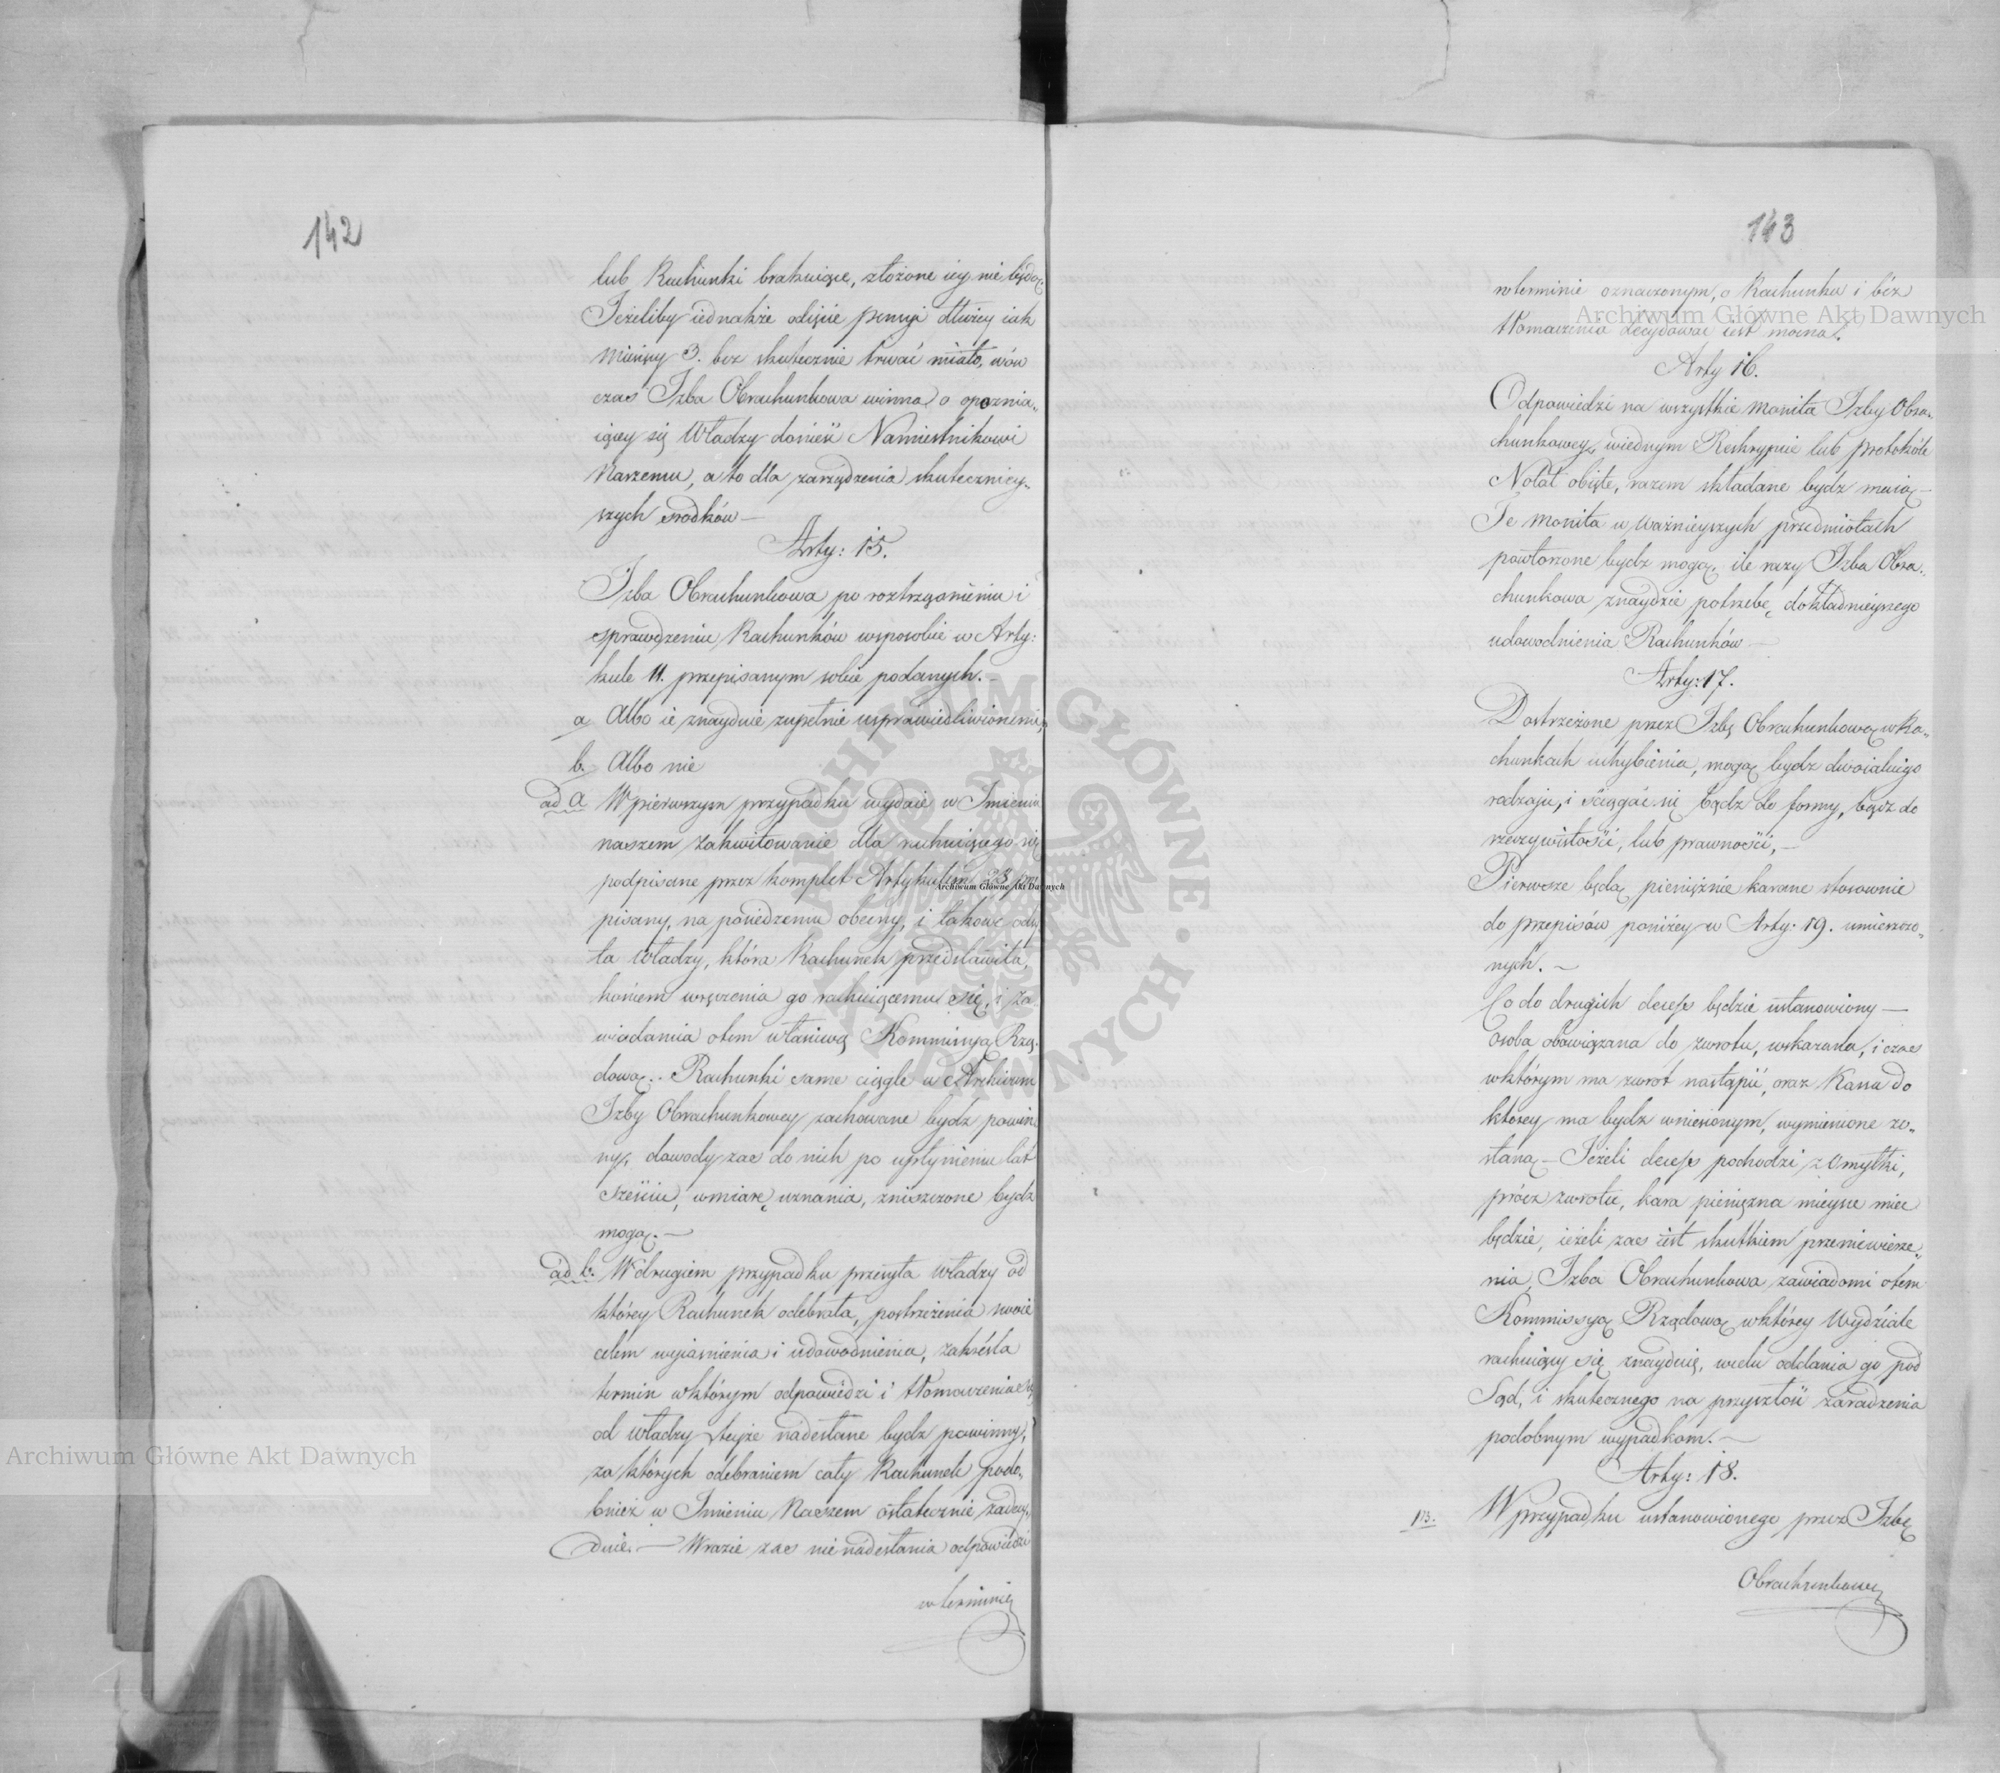 142
lub Rachunki brakuiące, złożone iey nie będą.
Jeżeliby iednakże odięcie pensyi dłużey iak
Miesięcy 3. bez skutecznie trwać miało, wów
czas Izba Obrachunkowa winna o opoznia„
iącey się Władzy donieść Namiestnikowi
Naszemu, a to dla zarządzenia skuteczniey„
szych srodków —
Arty: 15.
Izba Obrachunkowa po roztrząsnieniu i
sprawdzeniu Rachunków wsposobie w Arty:
kule 11. przepisanym sobie podanych. —
a Albo ie znaydzie zupełnie usprawiedliwionemi,
b. Albo nie
ad a Wpierwszym przypadku wydaie w Imieniu
naszem zakwitowanie dla rachuiącego się
podpisane przez komplet Artykułem 23 prze
pisany, na posiedzeniu obecny, i takowe odsy
ła Władzy, która Rachunek przedstawiła,
końcem wręczenia go rachuiącemu się, i za
wiadamia otem właściwą Kommissyą Rzą.
dową. — Rachunki same ciągle w Archiwum
Izby Obrachunkowey zachowane bydz powin
ny, dowody zas do nich po upłynieniu lat
sześciu, wmiarę uznania, zniszczone bydz
mogą. —
ad b. Wdrugiem przypadku przesyła Władzy od
którey Rachunek odebrała, postrzeżenia swoie
celem wyjasnienia i udowodnienia, zakreśla
termin wktórym odpowiedzi i tłomaczenia się
od władzy teyże nadesłane bydz powinny,
za których odebraniem cały Rachunek podo„
bnież w Imieniu Naszem ostatecznie zadecy„
duie. — Wrazie zas nie nadesłania odpowiedzi
w terminie
143
wterminie oznaczonym, o Rachunku i bez
tłomaczenia decydować iest mocna.
Arty 16.
Odpowiedzi na wszystkie monita Izby Obra„
chunkowey, wiednym Reskrypcie lub Protokóle
Notat obięte, razem składane bydz muszą —
Te monita w ważnieyszych przedmiotach
powtorzone bydz mogą. ile razy Izba Obra„
chunkowa znaydzie potrzebę, dokładnieyszego
udowodnienia Rachunków —
Arty: 17.
Dostrzeżone przez Izbę Obrachunkową w Ra„
chunkach uchybienia, mogą bydz dwoiakiego
rodzaju, i sciągać się bądz do formy, bądz do
rzeczywistości, lub prawności, —
Pierwsze będą pieniężnie karane stosownie
do przepisów poniżey w Arty: 19. umieszczo„
nych. —
Co do drugich decess będzie ustanowiony —
osoba obowiązana do zwrotu, wskazana, i czas
wktórym ma zwrot nastąpić, oraz Kassa do
którey ma bydz wniesionym, wymienione zo„
staną — Jeżeli decess pochodzi z Omyłki,
prócz zwrotu, kara pieniężna mieysce miec
będzie, ieżeli zas iest skutkiem przeniewierze„
nia, Izba Obrachunkowa zawiadomi otem
Kommissyą Rządową wktórey Wydziale
rachuiący się znayduie, wcelu oddania go pod
Sąd, i skutecznego na przyszłość zaradzenia
podobnym wypadkom. —
Arty: 18.
Wprzypadku ustanowionego przez Izbę
Obrachunkową
Archiwum Główne Akt Dawnych
Archiwum Główne Akt Dawnych
Archiwum Główne Akt Dawnych
ARCHIWUM GŁÓWNE · AKT DAWNYCH ·